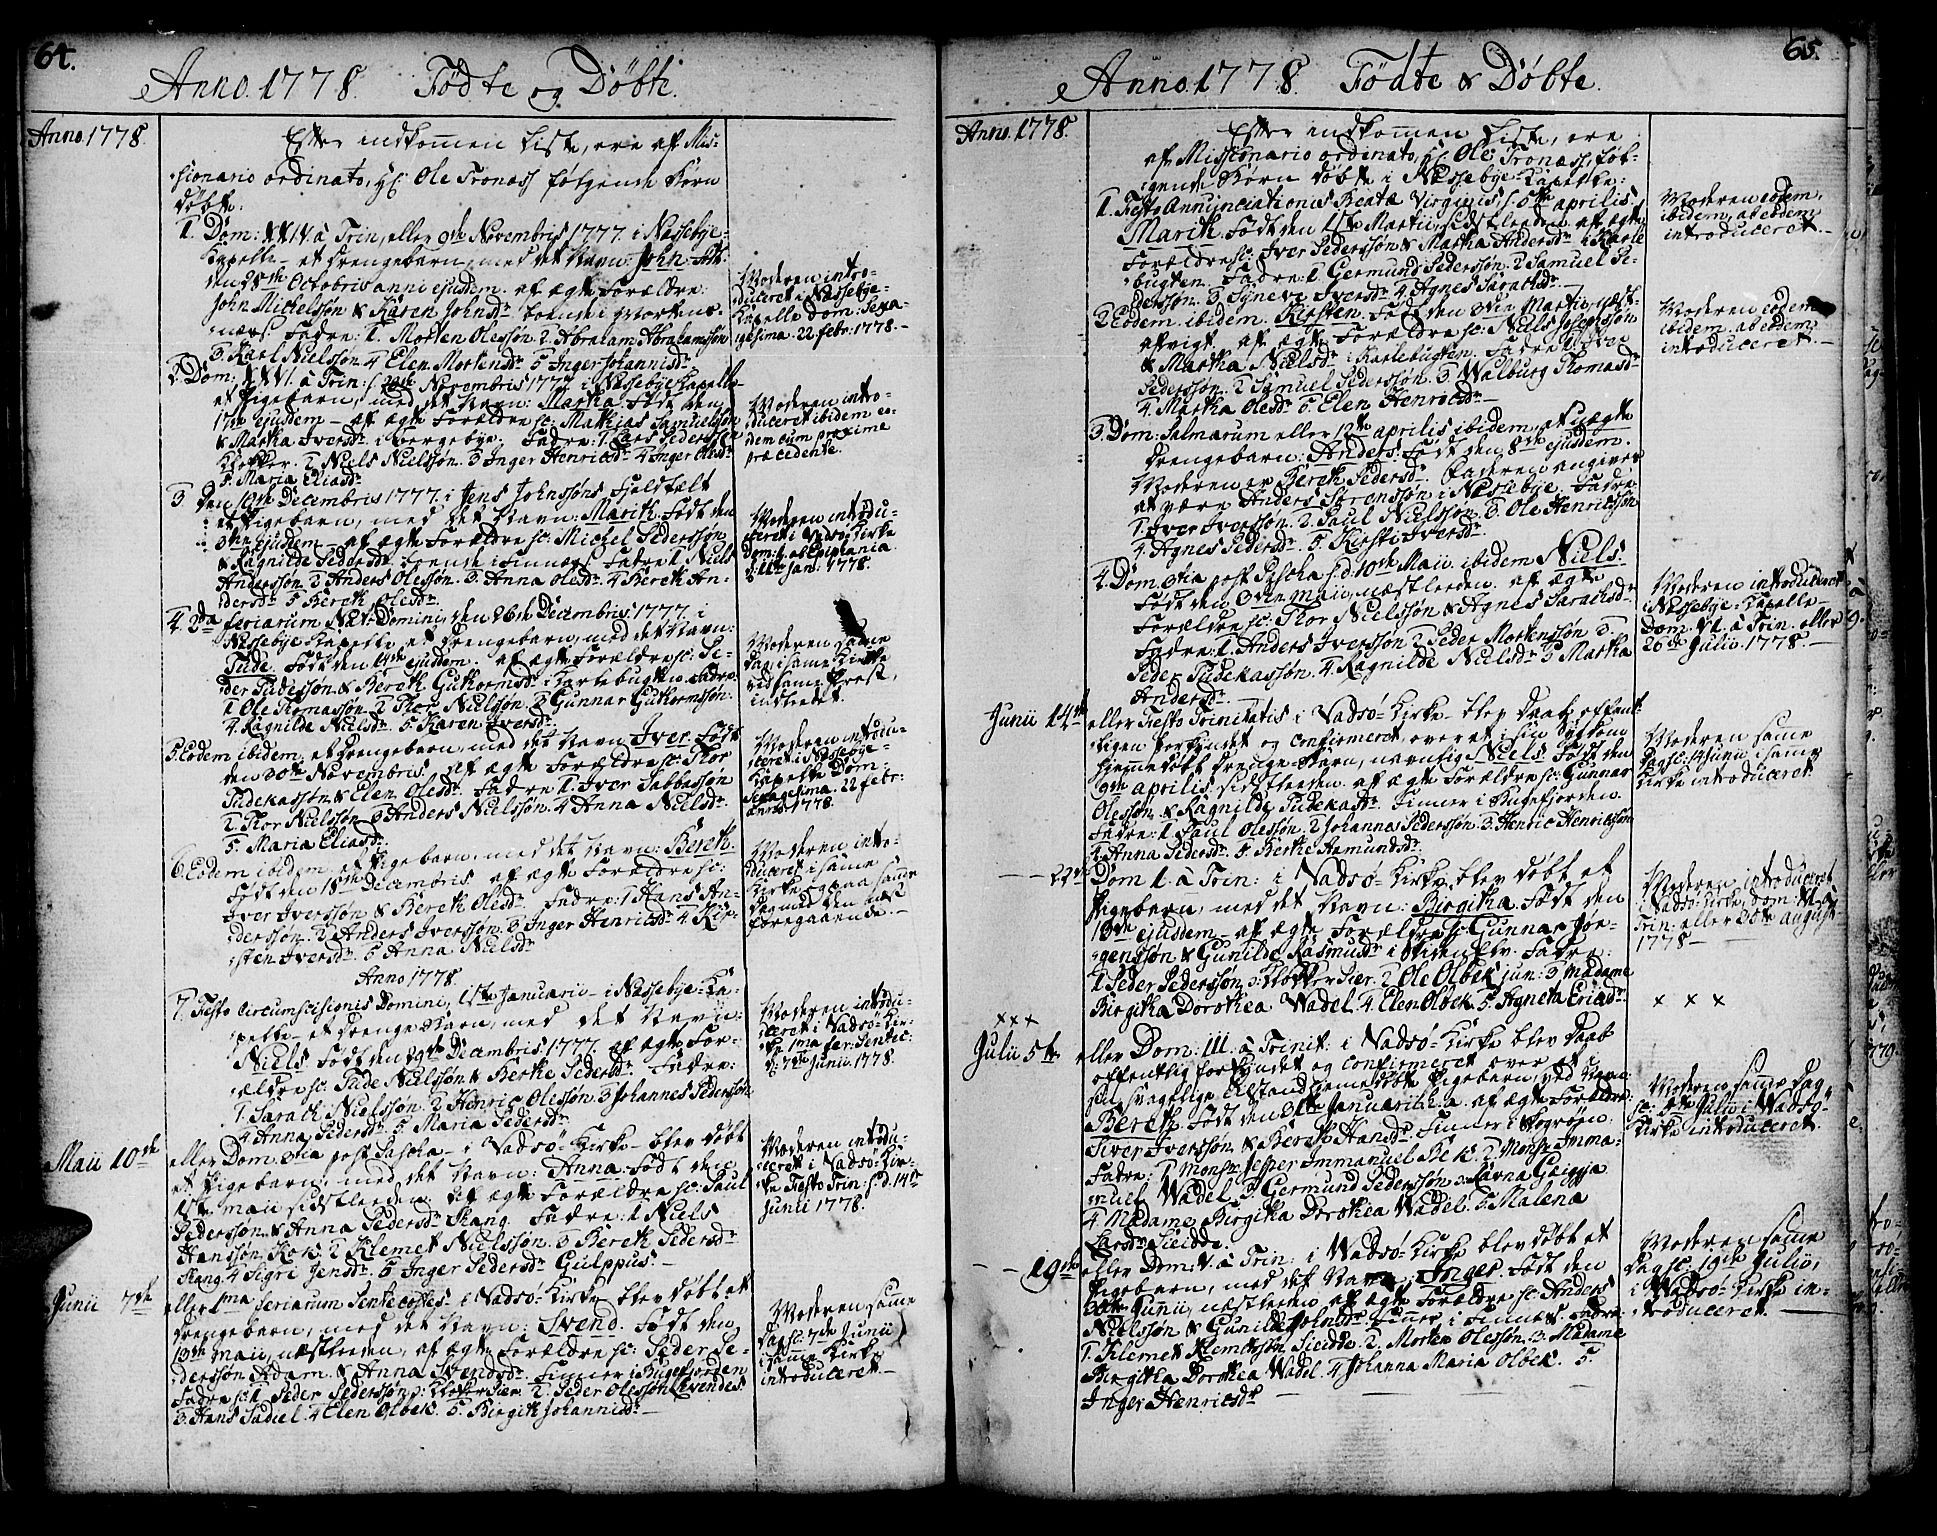 64.
Anno. 1778. Födte og Döbte.
Anno. 1778.
Efter indkommen Liste, ere af Mis-
sionario ordinato, Hr. Ole Tronæs følgende Börn
döbte:
1. Dom: XXIV. à Trin, eller 9de Novembris 1777. i Næssebye-
Kapelle- et Drengebarn, med det Navn: John. Född
den 28de Octobris anni ejusdem. af ægte Forældre:
John Michelssön & Karen Johnsdr. boende i Mortens-
næs. Fadre: 1. Morten Olessön. 2. Abraham Abrahamssön
3. Karl Nielssön. 4. Elen Mortensdr. 5. Inger Johannisdr.
Moderen intro-
duceret i Næssebye-
Kapelle Dom: Sexa-
gesima. 22 febr: 1778.-
2. Dom: XXVI. à Trin: s. 23de Novembris 1777. i Næssebye Kapelle-
et Pigebarn, med det Navn: Martha. Födt den
17de ejusdem- af ægte Forældre sc: Mathias Samuelssön
& Martha Iversdr. i Bergebye. Fadre: 1. Lars Pederssön
Klokker. 2. Niels Nielssön. 3. Inger Henricsdr. 4. Inger Olesdr.
5. Maria Eliasdr.
Moderen intro-
duceret ibidem eo-
dem cum proxime
præcedente.
3. Den 10de Decembris 1777. i Jens Johnssöns Fjeldtelt
et Pigebarn, med det Navn: Marith. Födt den
3die ejusdem- af ægte Forældre sc: Michel Pederssön
& Ragnilde Pedersdr. boende i Finnæs. Fadre: 1. Niels
Anderssön. 2. Anders Olessön. 3. Anna Olesdr. 4. Bereth An-
dersdr. 5. Bereth Olesdr.
Moderen introdu-
ceret i Vadsö Kirke
Dom: 1. ab Epiphania
d: 11te Jan: 1778.
4. 2da feriarum Nat: Domini, den 26de Decembris 1777. i
Næssebye Kapelle, et Drengebarn, med det Navn:
Tude. Födt den 14de ejusdem. af ægte Forældre sc: Pe-
der Tudessön & Bereth Guthormsdr. i Karlebugten. Fadre:
1. Ole Thomassön. 2. Thor Nielssön. 3. Gunnar Guthormssön.
4. Ragnilde Nielsdr. 5. Karen Iversdr.
Moderen samme
Dag i samme Kirke
ved samme Præst,
indledet.
5. Eodem ibidem, et Drengebarn, med det Navn Iver. Födt
den 30te Novembris. af ægte Forældre sc: Thor
Tudekassön & Elen Olesdr. Fadre 1. Iver Sabbassön
2. Thor Nielssön 3. Anders Nielssön. 4. Anna Nielsdr.
5. Maria Eliasdr.
Moderen introdu-
ceret i Næssebye-
Kapelle Dom:
Sexagesima. 22 febr:
anno 1778.
6. Eodem ibidem, et Pigebarn, med det Navn: Bereth.
Födt den 18de Decembris. af ægte Forældre sc:
Iver Iverssön & Bereth Olesdr. Fadre: 1. Hans An-
derssön. 2. Anders Iverssön. 3. Inger Henricsdr. 4. Kir-
sten Iversdr. 5. Anna Nielsdr.
Moderen intro-
duceret i samme
Kirke og paa samme
Dag med den næst
foregaaende.-
Anno 1778.
7. Festo Circumscisionis Domini, 1ste Januarii- i Næssebye-Ka-
pelle- et Drenge-Barn, med det Navn:
Niels. Födt den 29de Decembris 1777. af ægte For-
ældre sc: Tude Nielssön & Berthe Pedersdr. Fadre:
1. Sarach Nielssön. 2. Henric Olessön. 3. Johannes Pederssön
4. Anna Pedersdr. 5. Maria Pedersdr.
Moderen introdu-
ceret i Vadsö-Kir-
ke 1ma fer: Pentec:
d: 7de Junii. 1778.
Maii 10de
eller Dom: 3tia post Pascha- i Vadsö-Kirke- blev döbt
et Pigebarn, med det Navn: Anna. Födt den
1ste Maii sidstleeden. af ægte Forældre sc: Paul
Pederssön & Anna Pedersdr. Skang. Fadre: 1. Niels
Hanssön Kok. 2. Klemet Nielssön. 3. Bereth Pedersdr.
Skang. 4. Sigri Jensdr. 5. Inger Pedersdr. Gulppus.-
Moderen introdu-
ceret i Vadsö-Kir-
ke Festo Trin: s. d. 14de
Junii 1778.
Junii 7de
eller 1ma feriarum Pentecostes- i Vadsö-Kirke- blev döbt et
Drengebarn, med det Navn: Svend. Födt den
13de Maii, næstleeden, af ægte Forældre sc: Peder Pe-
derssön Adam. & Anna Svendsdr. Finner i Bugefjorden
Fadre sc: 1. Peder Pederssön Klokker Sier. 2. Peder Olessön Svendes.
3. Hans Sadiel. 4. Elen Olbek. 5. Birgith Johannisdr.-
Moderen samme
Dag sc: 7de Junii
i samme Kirke
introduceret.-
65.
Anno. 1778. Födte & Döbte.
Anno. 1778.
Efter indkommen Liste, ere
af Missionario ordinato, Hr. Ole Tronæs, föl-
gende Börn döbte i Næssebye Kapelle:
1. Festo Annunciationis Beatæ Virginis, s. 5te Aprilis
Marith. Födt den 1ste Martii, sidstleeden. af ægte
Forældre sc: Iver Pederssön & Martha Andersdr. i Karle
bugten. Fadre: 1. Germund Pederssön. 2. Samuel Pe-
derssön. 3. Synnevi Iversdr. 4. Agnes Sarachsdr.
Moderen eodem,
ibidem, ab eodem
introduceret.-
2. Eodem. ibidem. Kirsten. Födt den 3die Martii, næst-
afvigt. af ægte Forældre sc: Niels Josephssön
& Martha Nielsdr. i Karlebugten. Fadre: 1. Iver
Pederssön. 2. Samuel Pederssön. 3. Walburg Thomasdr.
4. Martha Olesdr. 5. Elen Henricsdr.-
Moderen eodem
ibidem. ab eodem
introduceret.-
3. Dom: Palmarum eller 12te Aprilis ibidem, et Uægte
Drengebarn: Anders. Födt den 8de ejusdem.
Moderen er Bereth Pedersdr. Faderen angives
at være Anders Sörenssön i Næssebye. Fadre
1. Iver Iverssön. 2. Paul Nielssön. 3. Ole Henricssön
4. Agnes Pedersdr. 5. Kirsti Iversdr.
4. Dom. 3tia post Pascha s. d. 10de Maii ibidem Niels.
Födt den 3die Maii, næstleeden. af ægte
Forældre sc: Thor Nielssön & Agnes Sarachsdr.
Fadre: 1. Anders Iverssön 2. Peder Mortenssön 3.
Peder Tudekassön. 4. Ragnilde Nielsdr. 5. Martha
Andersdr.
Moderen introduceret
i Næssebye-Kapelle-
Dom. VI. à Trin. eller
26de Julii. 1778.-
Junii 14de
eller Festo Trinitatis i Vadsö-Kirke- blev Daab offent-
ligen forkyndet og Confirmeret, over et i sin Sygdom
hjemmedöbt Drenge-Barn, navnlig Niels. Födt den
9de Aprilis sidstleeden. af ægte Forældre sc: Gunnar
Olessön. & Ragnilde Tudekasdr. Finner i Bugefjorden.
Fadre: 1. Paul Olessön. 2. Johannes Pederssön. 3. Henric Henricssön
4. Anna Pedersdr. 5. Berthe Aamundsdr.
Moderen samme
Dag sc: 14 Junii i samme
Kirke introduceret
— — 21de
Dom 1. à Trin: i Vadsö-Kirke, blev döbt et
Pigebarn, med det Navn: Birgitha. Födt den
13de ejusdem- af ægte Forældre sc: Gunnar Jör-
genssön & Gunilde Rasmusdr. Fadre:
1. Peder Pederssön, Klokker Sier. 2. Ole Olbek jun: 3. Madame
Birgitha Dorothea Wadel. 4. Elen Olbek. 5. Agneta Ericsdr.
Moderen introduceret
i Vadsö-Kirke, Dom:
Trin: eller 30te August
1778-
x x x
xxx
Julii 5te
eller Dom: III. à Trinit: i Vadsö-Kirke blev Daab
offentlig forkyndet og Confirmeret over et i
sin svagelige Tilstand hjemmedöbt Pigebarn, ved Navn
Bereth. Födt den 31te Januarii h. a. af ægte Forældre:
Siver Iverssön & Bereth Hansdr. Finner i
Fadre: 1. Monsr. Jesper Immanuel Bek. 2. Monsr. Imma-
nuel Wadel. 3. Germund Pederssön Javna Geigja
4. Madame Birgitha Dorothea Wadel. 5. Malena
Larsdr. Sieidde.
Moderen samme Dag
sc: 5te Julii i Vadsö-
Kirke introduceret.
— — 19de
eller Dom: V. à Trin: i Vadsö-Kirke blev döbt et
Pigebarn, med det Navn: Inger. Födt den
30te Junii, næstleeden af ægte Forældre sc: Anders
Nielssön & Gunilde Johnsdr. Finner i Finnes. Fadre:
1. Klemet Klemetssön Sieidde. 2. Morten Olessön. 3. Madame
Birgitha Dorothea Wadel. 4. Johanna Maria Olbek. 5.
Inger Henricsdr.
Moderen samme
Dag sc: 19de Julii,
i Vadsö-Kirke in-
troduceret.